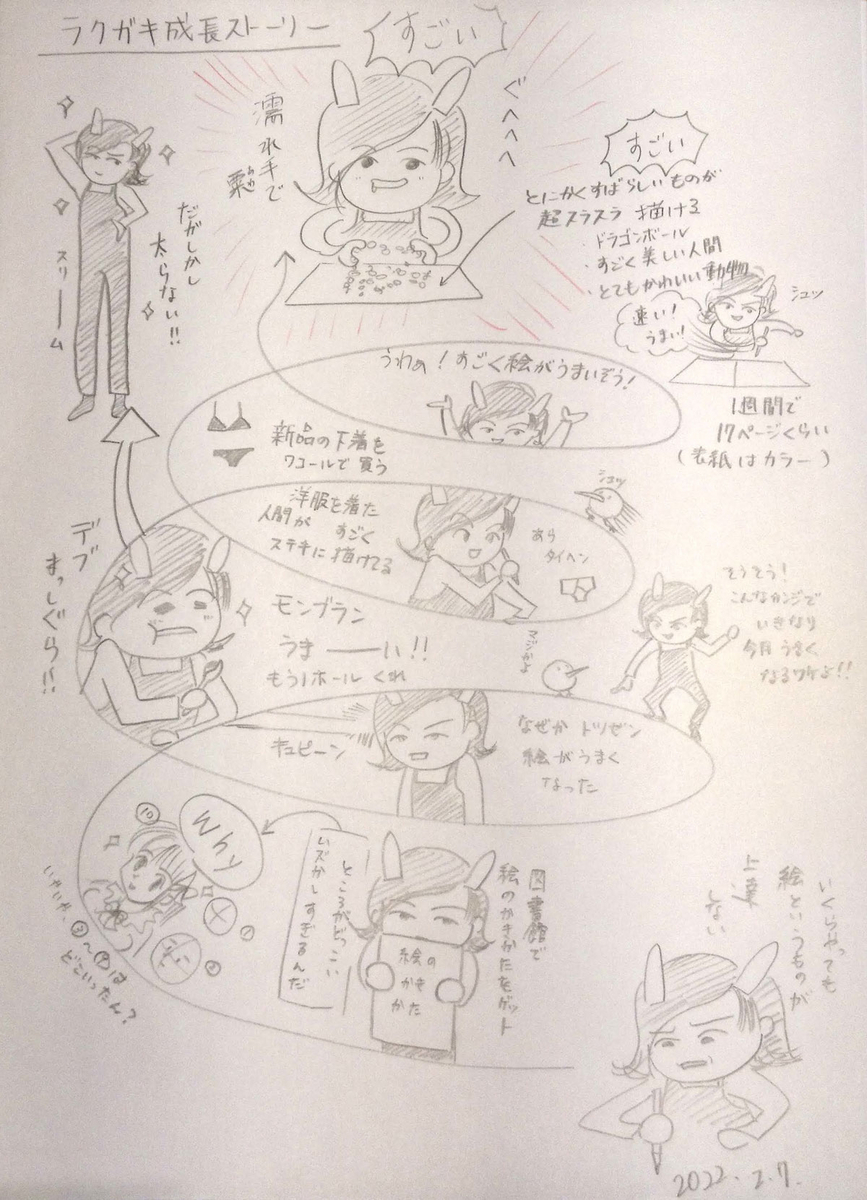 ラクガキ成長ストーリー
すごい
ぐへへへ
濡れ手で
粟
あわ
すごい
とにかくすばらしいものが
超スラスラ描ける
・ドラゴンボール
・すごく美しい人間
・とてもかわいい動物
速い!
うまい!
シュッ
1週間で
17ページくらい
(表紙はカラー)
だがしかし
太らない!!
スリーーム
うわぁ!すごく絵がうまいぞう!
新品の下着を
ワコールで買う
洋服を着た
人間が すごく
ステキに描けてる
あら
タイヘン
シュッ
デブ
まっしぐら!!
モンブラン
うまーーい!!
もう1ホールくれ
マジかよ
そうそう!
こんなカンジで
いきなり
今月うまく
なるワケよ!!
キュピーン
なぜかトツゼン
絵がうまく
なった
Why
⑩
ところがどっこい
ムズかしすぎるんだ
図書館で
絵のかきかたをゲット
絵の
かき
かた
①
②
いやいや、③〜⑨は
どこいったん?
いくらやっても
絵というものが
上達
しない
2022.2.7.